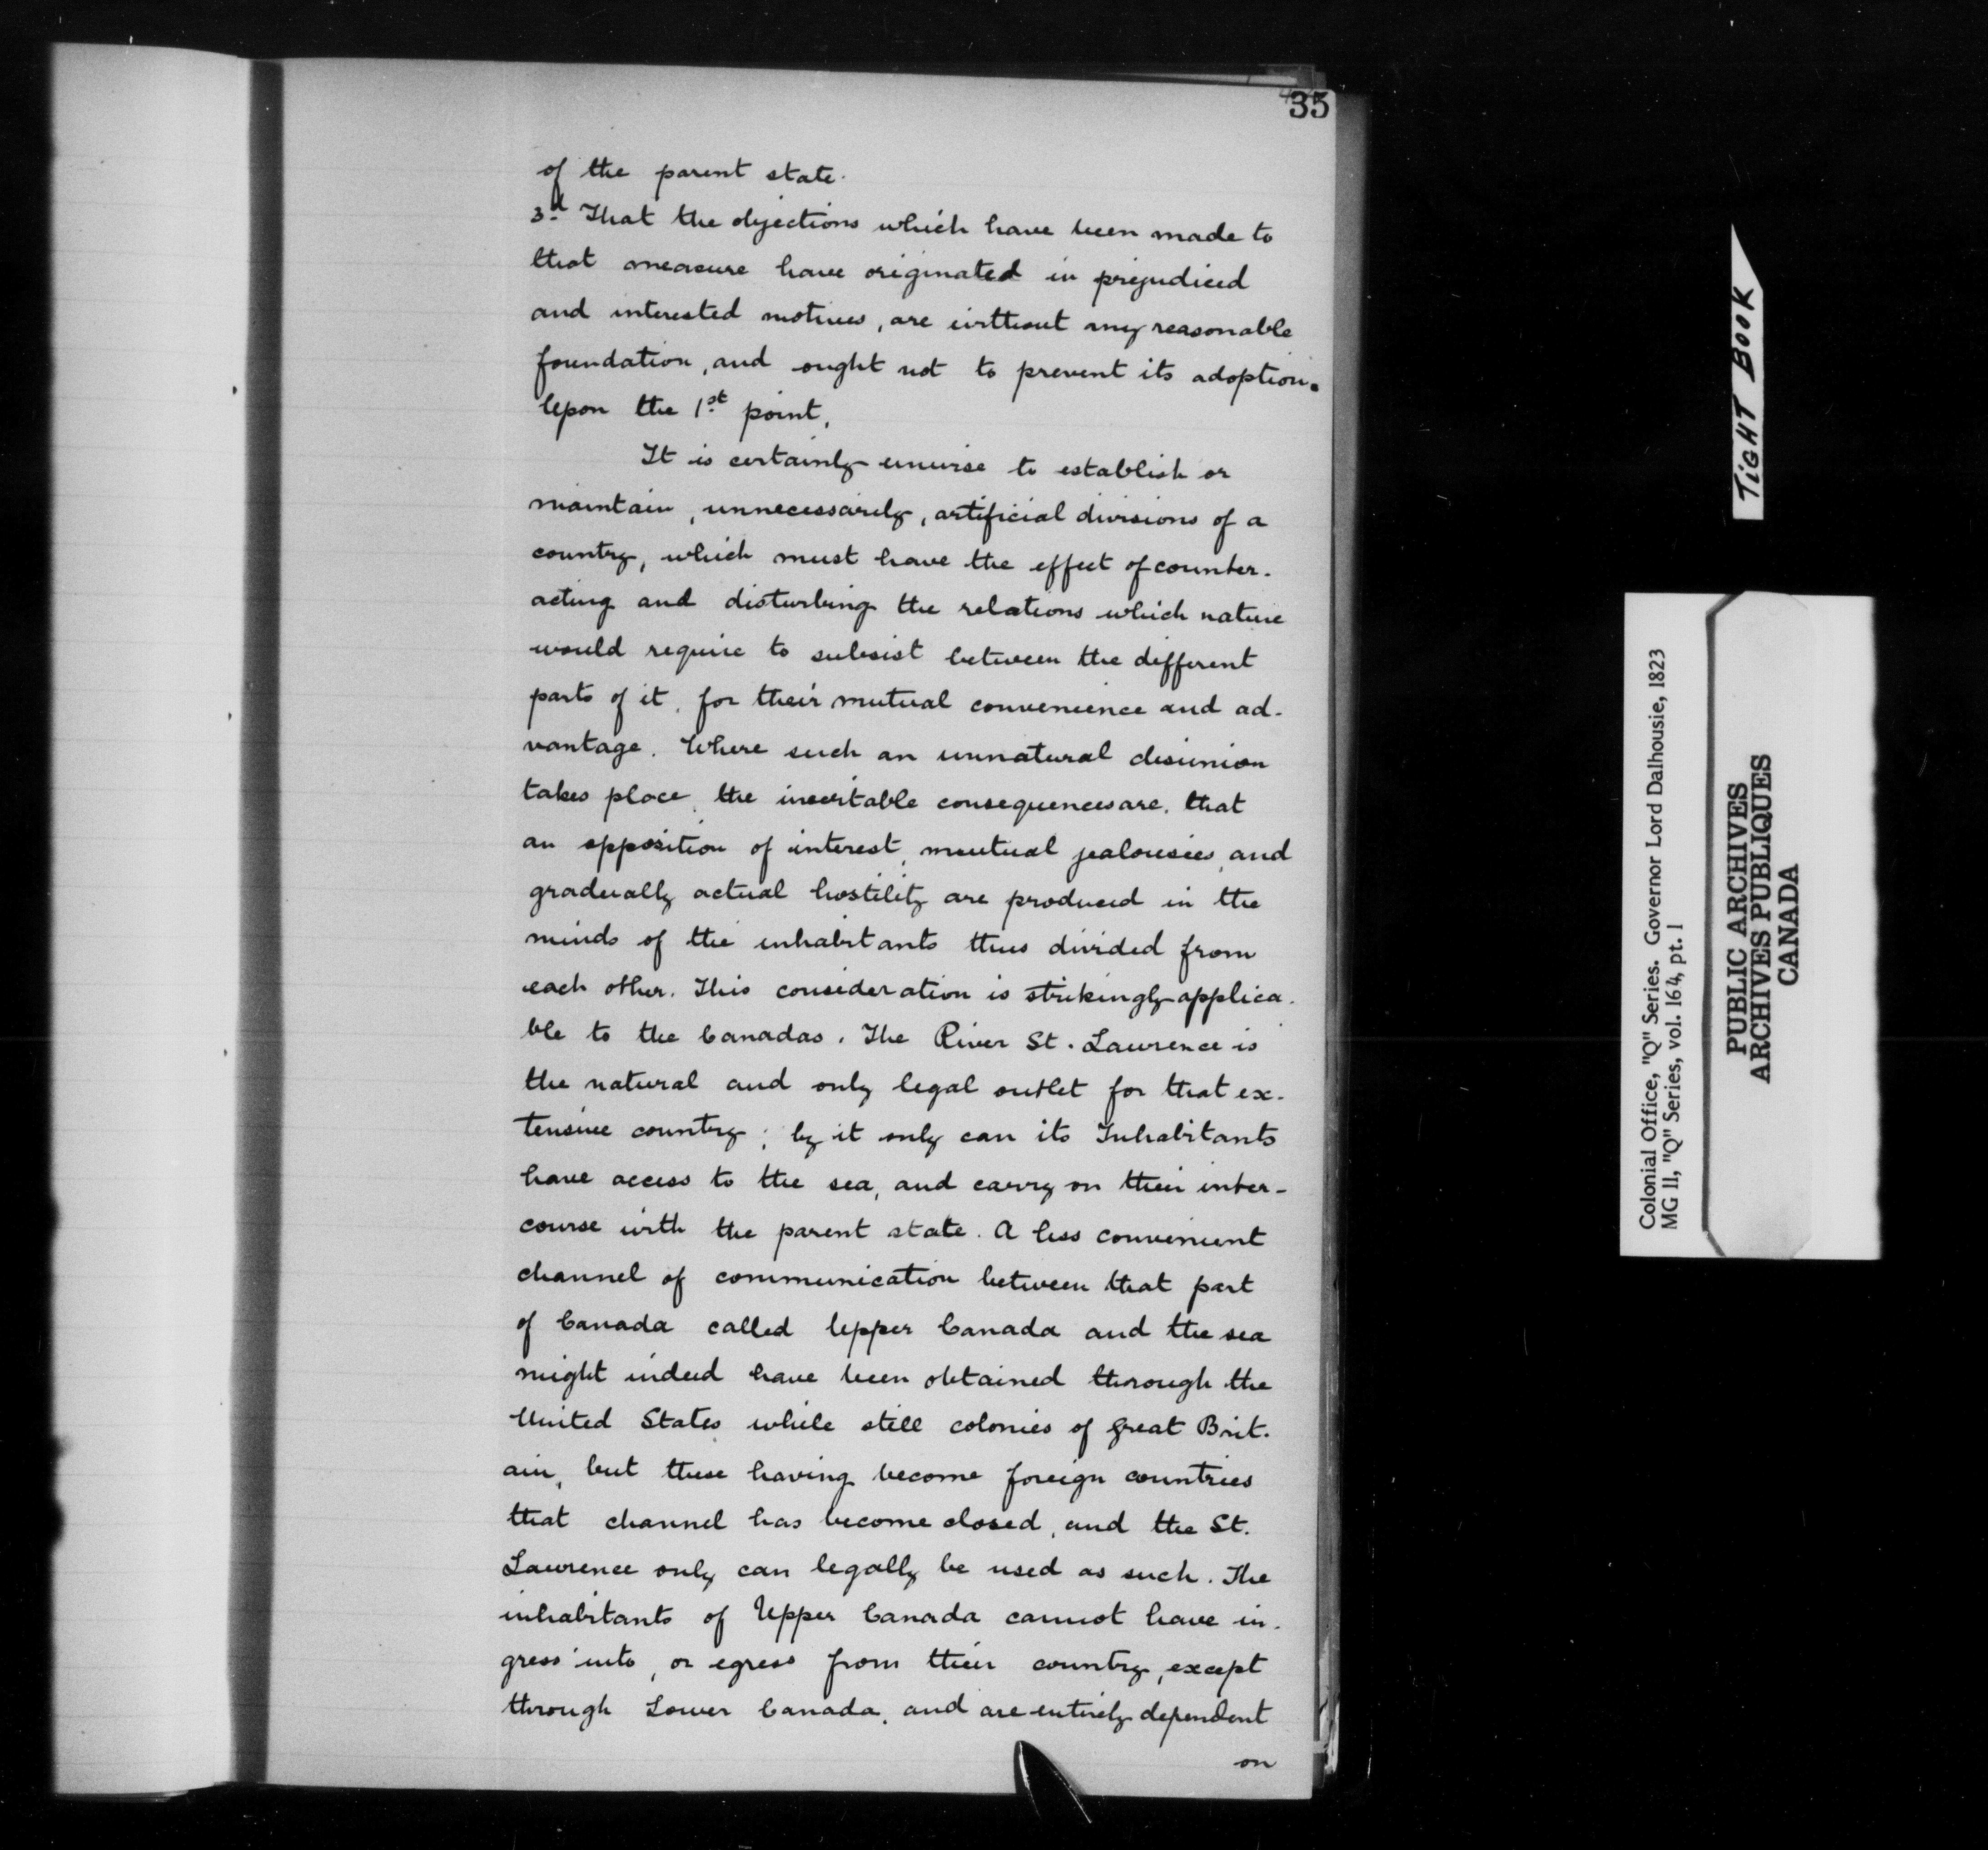 35
of the parent state.
3d. That the objections which have been made to
that measure have originated in prejudiced
and interested motives, are without any reasonable
foundation, and ought not to prevent its adoption.
Upon the 1st. point,
It is certainly unwise to establish or
maintain, unnecessarily, artificial divisions of a
country, which must have the effect of counter-
acting and disturbing the relations which nature
would require to subsist between the different
parts of it, for their mutual convenience and ad-
vantage. Where such an unnatural disunion
takes place, the inevitable consequences are, that
an opposition of interest, mutual jealousies, and
gradually actual hostility are produced in the
minds of the inhabitants thus divided from
each other. This consideration is strikingly applica-
ble to the Canadas. The River St. Lawrence is
the natural and only legal outlet for that ex-
tensive country; by it only can its Inhabitants
have access to the sea, and carry on their inter-
course with the parent state. A less convenient
channel of communication between that part
of Canada called Upper Canada and the sea
might indeed have been obtained through the
United States while still colonies of great Brit-
ain, but these having become foreign countries
that channel has become closed, and the St.
Lawrence only can legally be used as such. The
inhabitants of Upper Canada cannot have in-
gress into, or egress from their country, except
through Lower Canada, and are entirely dependent
on
TIGHT BOOK
Colonial Office, "Q" Series. Governor Lord Dalhousie, 1823
MG 11, "Q" Series, vol. 164, pt. 1
PUBLIC ARCHIVES
ARCHIVES PUBLIQUES
CANADA